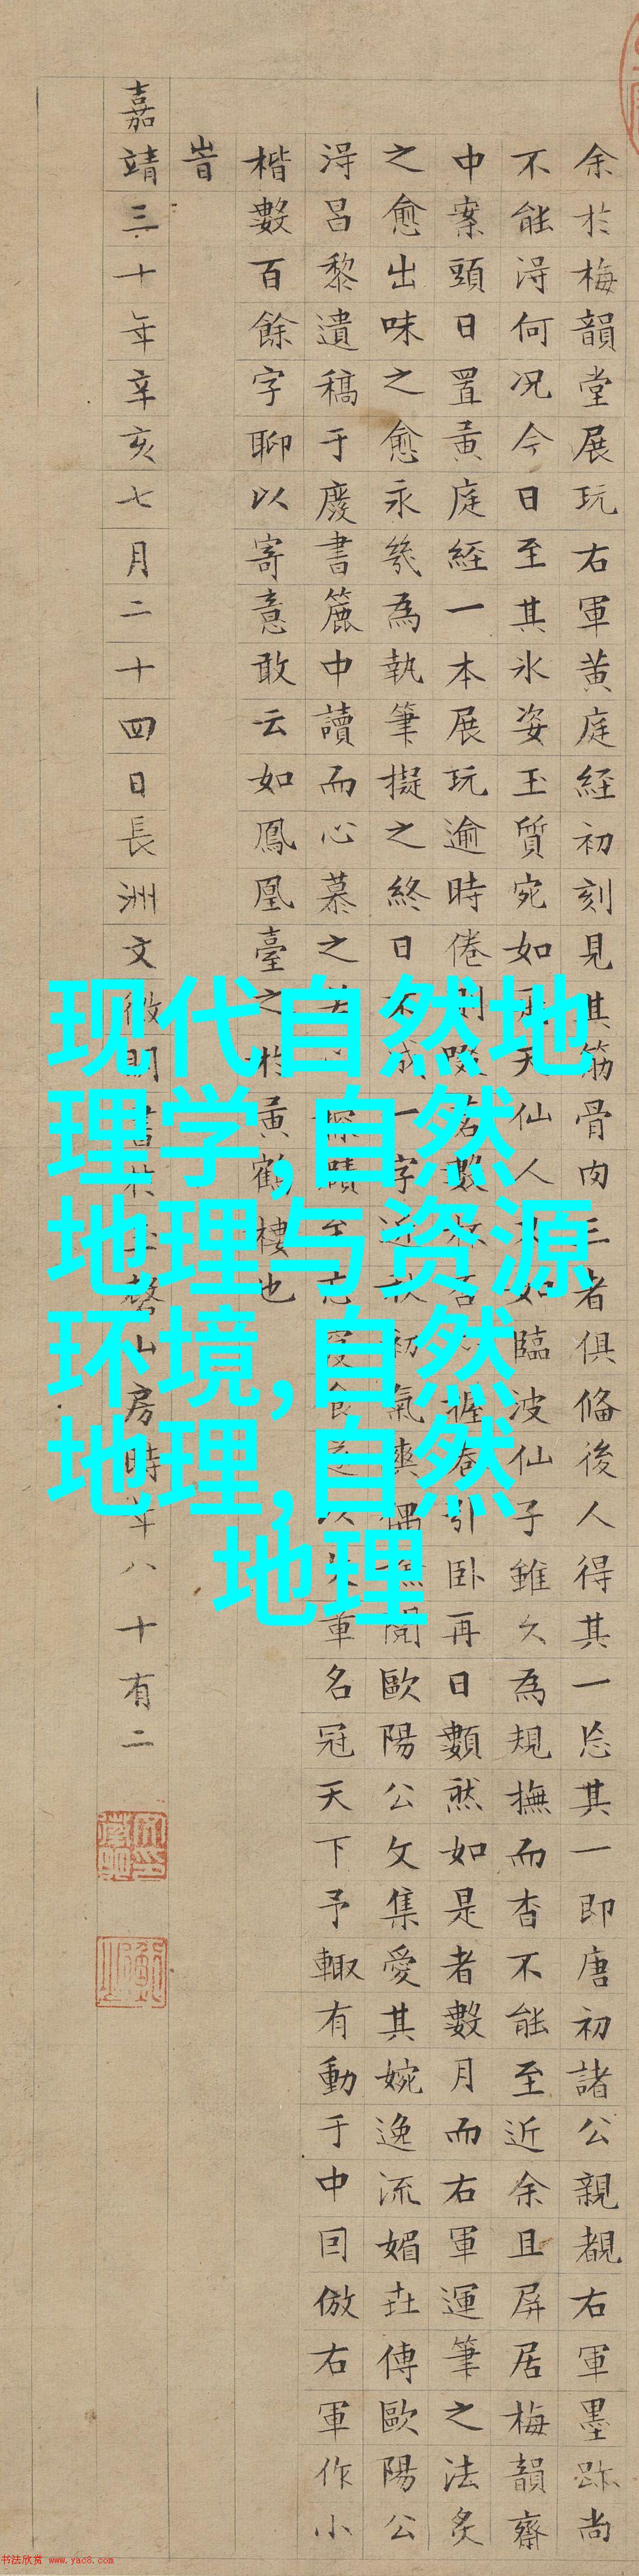 余於梅韻堂展玩右軍黃庭經初刻見其筋骨肉三者俱俻後人得其一忘其一即唐初諸公親覩右軍墨跡尚
不能淂何况今日至其氷姿玉質宛如天仙人如臨波仙子雖久為規撫而杳不能至近余且屏居梅韻齋
中案頭日置黃庭經一本展玩逾時倦則啜茗數杯否握卷引卧再日數然如是者數月而右軍運筆之法炙
之愈出味之愈永幾為執筆擬之終日不成一字近秋初氣爽偶閱歐陽公文集愛其婉逸流媚世傳歐陽公
淂昌黎遺稿于廢書簏中讀而心慕之探賾至忘寢食右軍名冠天下予輙有動于中因倣右軍作小
楷數百餘字聊以寄意敢云如鳳凰臺之於黃鶴樓也
旹
嘉靖三十年辛亥七月二十四日長洲文徴明書於玉磬山房時年八十有二
现代自然地
理学,自然
地理与资源
环境,自然
地理,自然
地理
书法欣赏 www.yac8.com